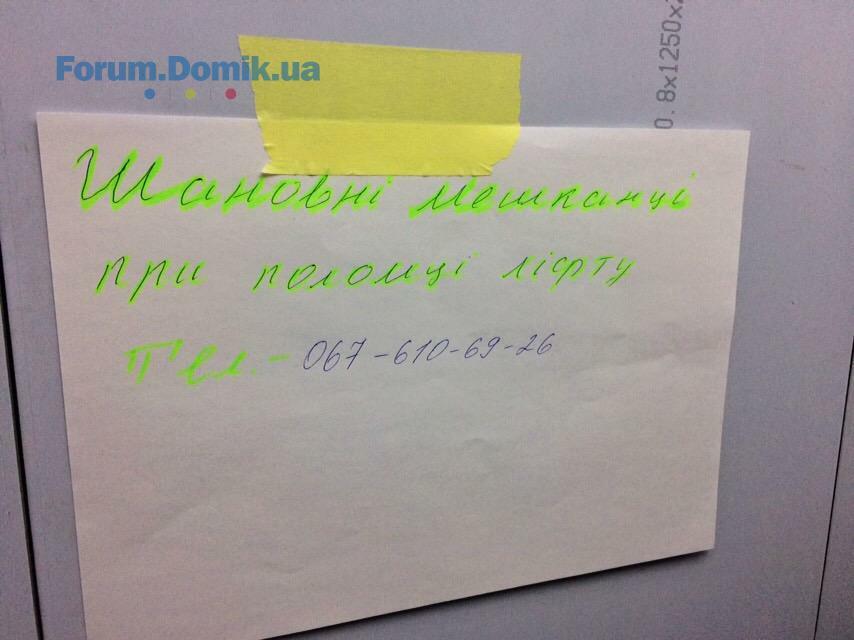 Forum.Domik.ua
0.8x1250x
Шановні мешканці
при поломці ліфту
Тел.- 067-610-69-26